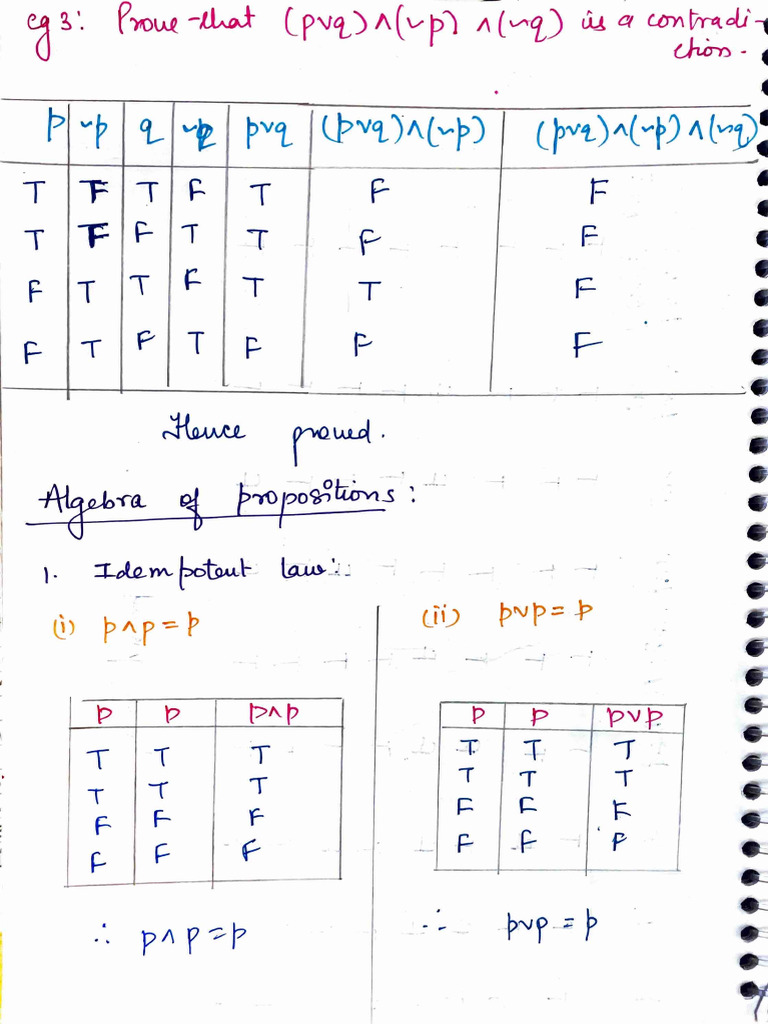 eg 3: Prove that (p∨q) ∧ (~p) ∧ (~q) is a contradi-
ction.
p ~p q ~q p∨q (p∨q)∧(~p) (p∨q)∧(~p)∧(~q)
T F T F T F F
T F F T T F F
F T T F T T F
F T F T F F F
Hence proved.
Algebra of propositions:
1. Idempotent law:
(i) p∧p = p (ii) p∨p = p
p p p∧p p p p∨p
T T T T T T
T T T T T T
F F F F F F
F F F F F F
∴ p∧p = p ∴ p∨p = p